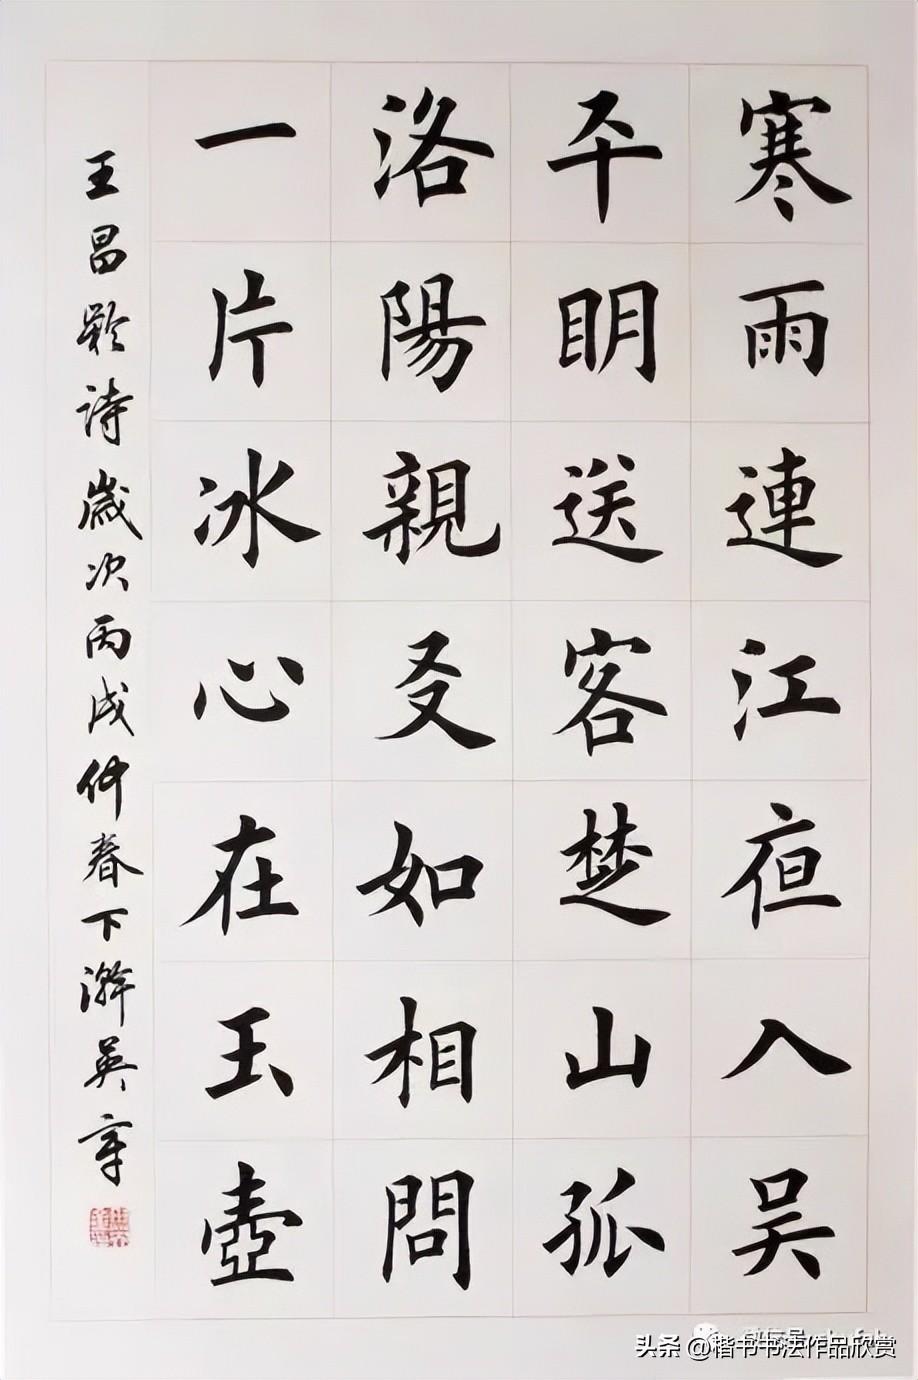 寒雨連江亱入吴
平眀送客楚山孤
洛陽親友如相問
一片冰心在玉壺
王昌齡詩歲次丙戌仲春下澣英章
头条 @楷书书法作品欣赏